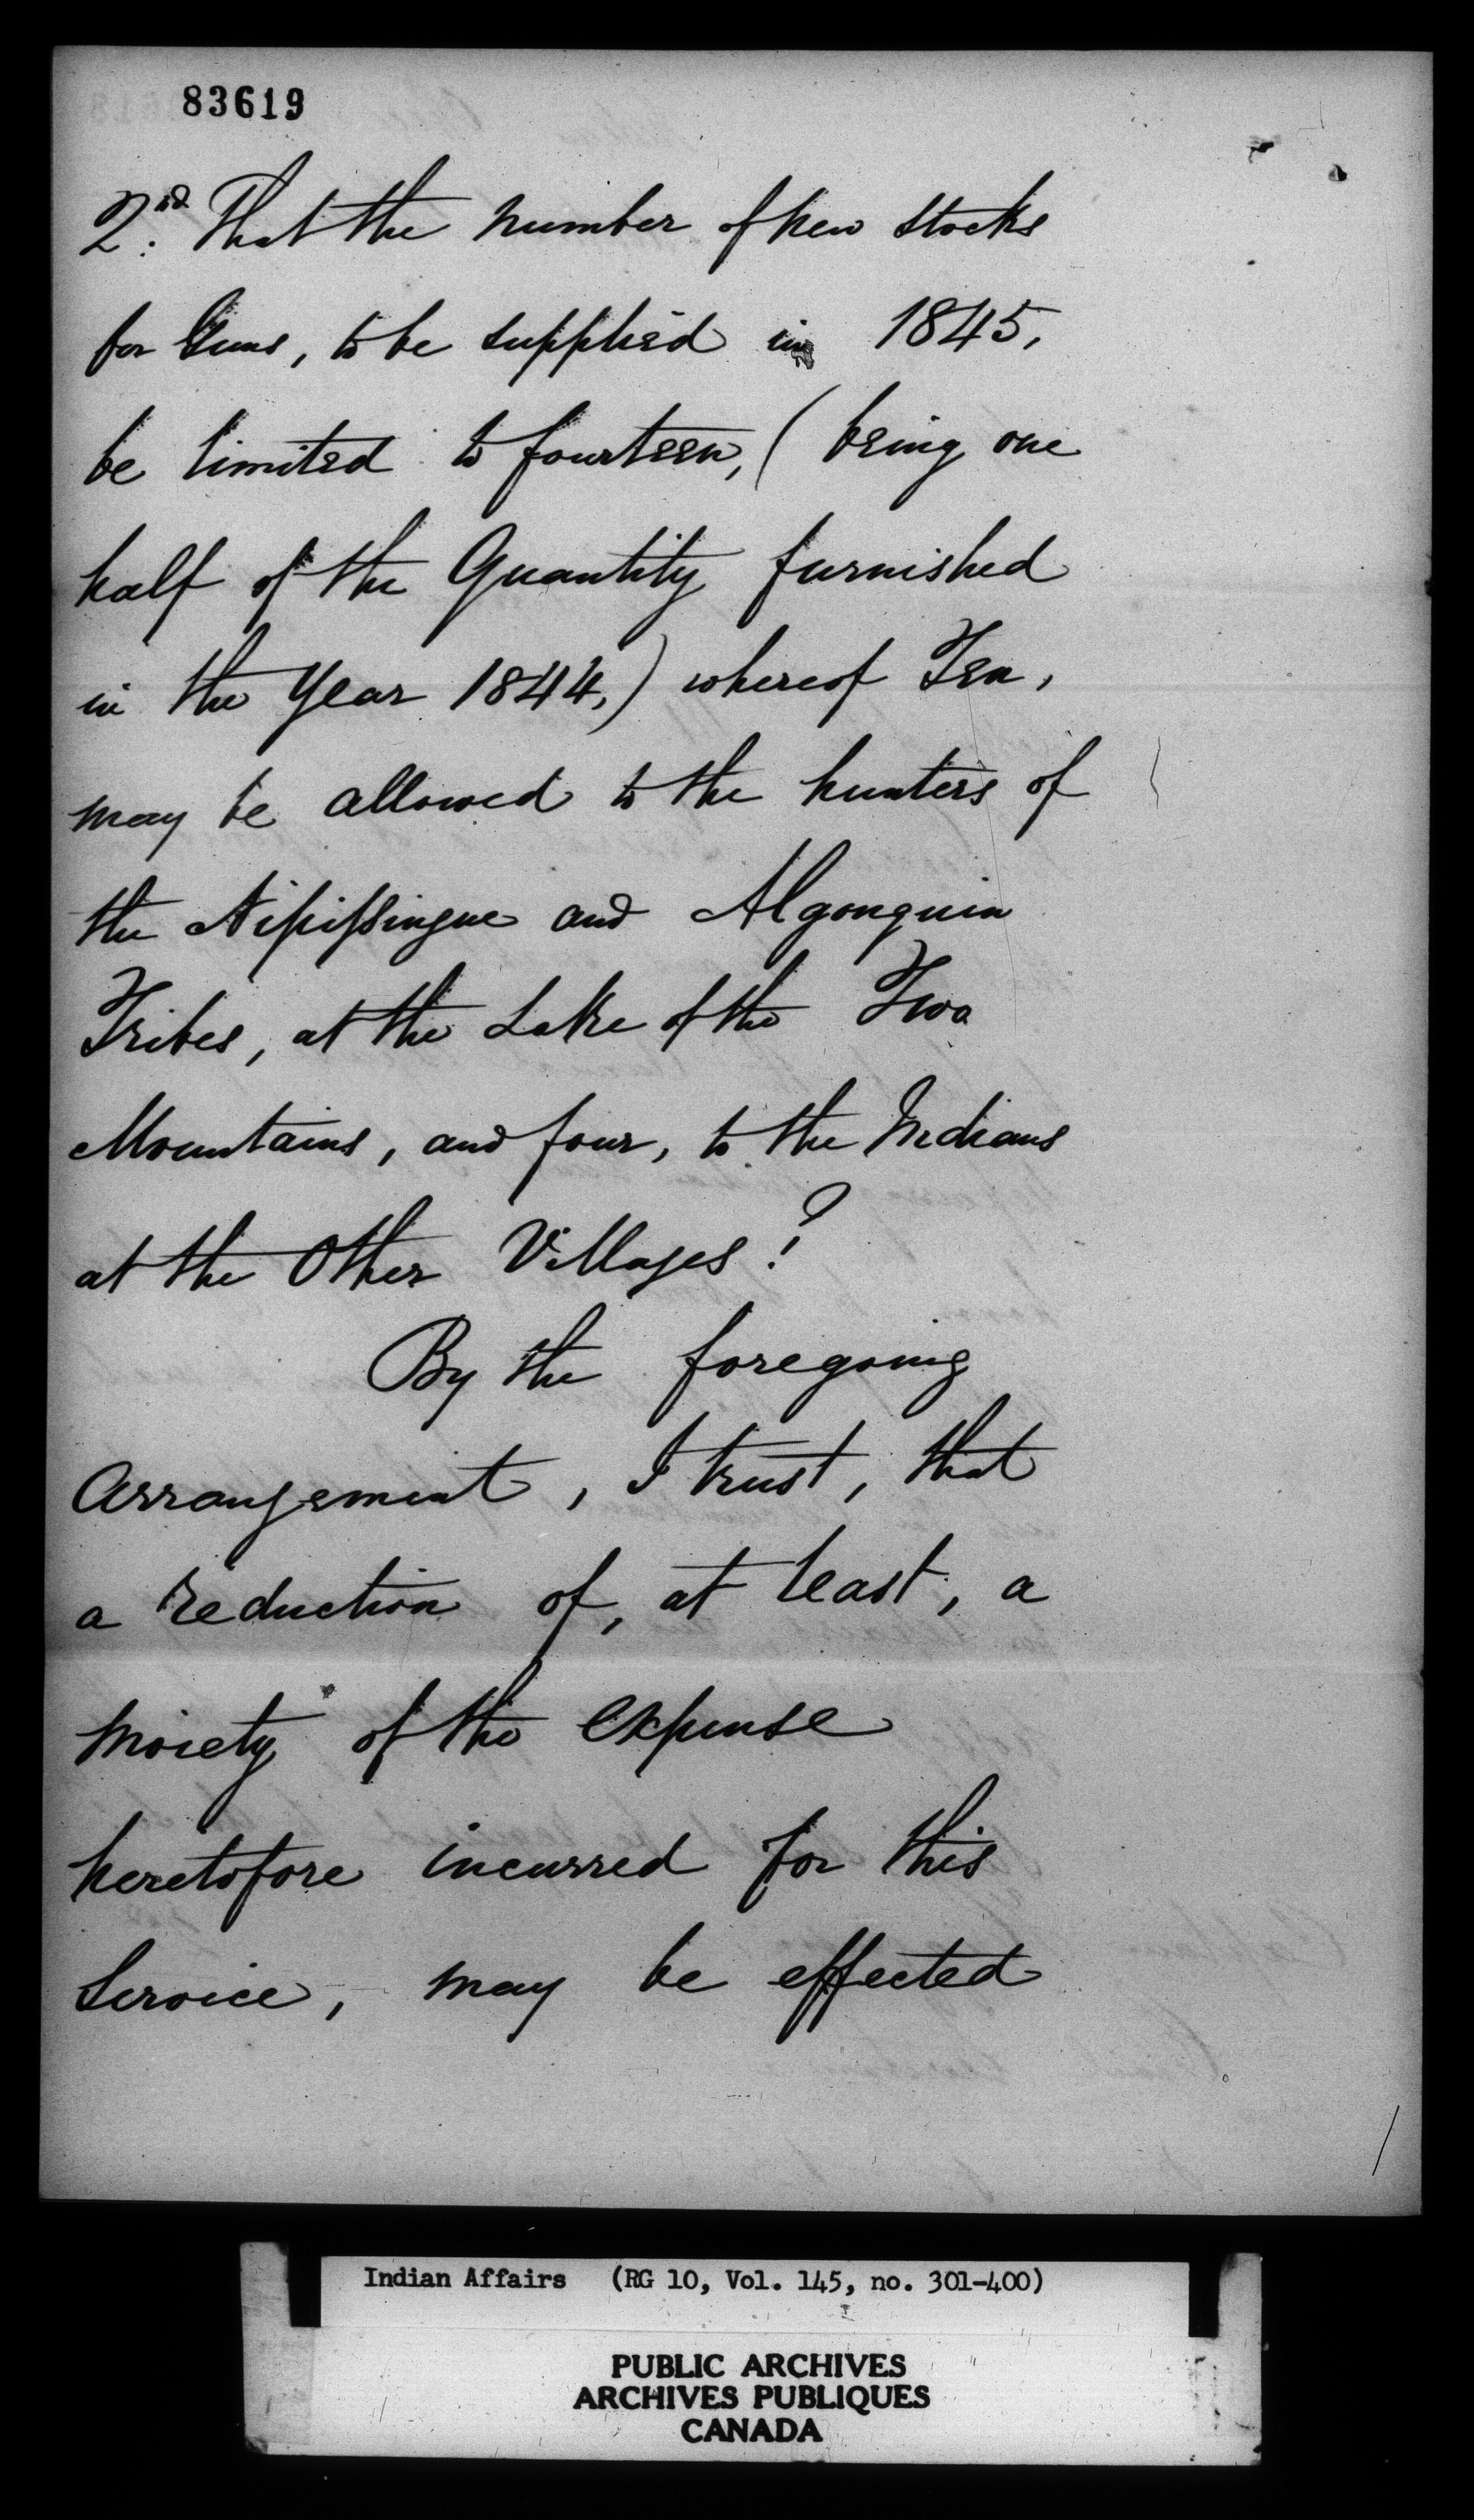 83619
2nd. That the number of new stocks
for Guns, to be supplied in 1845,
be limited to fourteen, (being one
half of the Quantity furnished
in the Year 1844,) whereof Ten,
may be allowed to the hunters of
the Nipissingue and Algonquin
Tribes, at the Lake of the Two
Mountains, and four, to the Indians
at the Other Villages?
By the foregoing
arrangement, I trust, that
a reduction of, at least, a
moiety of the expense
heretofore incurred for this
Service, may be effected
Indian Affairs (RG 10, Vol. 145, no. 301-400)
PUBLIC ARCHIVES
ARCHIVES PUBLIQUES
CANADA